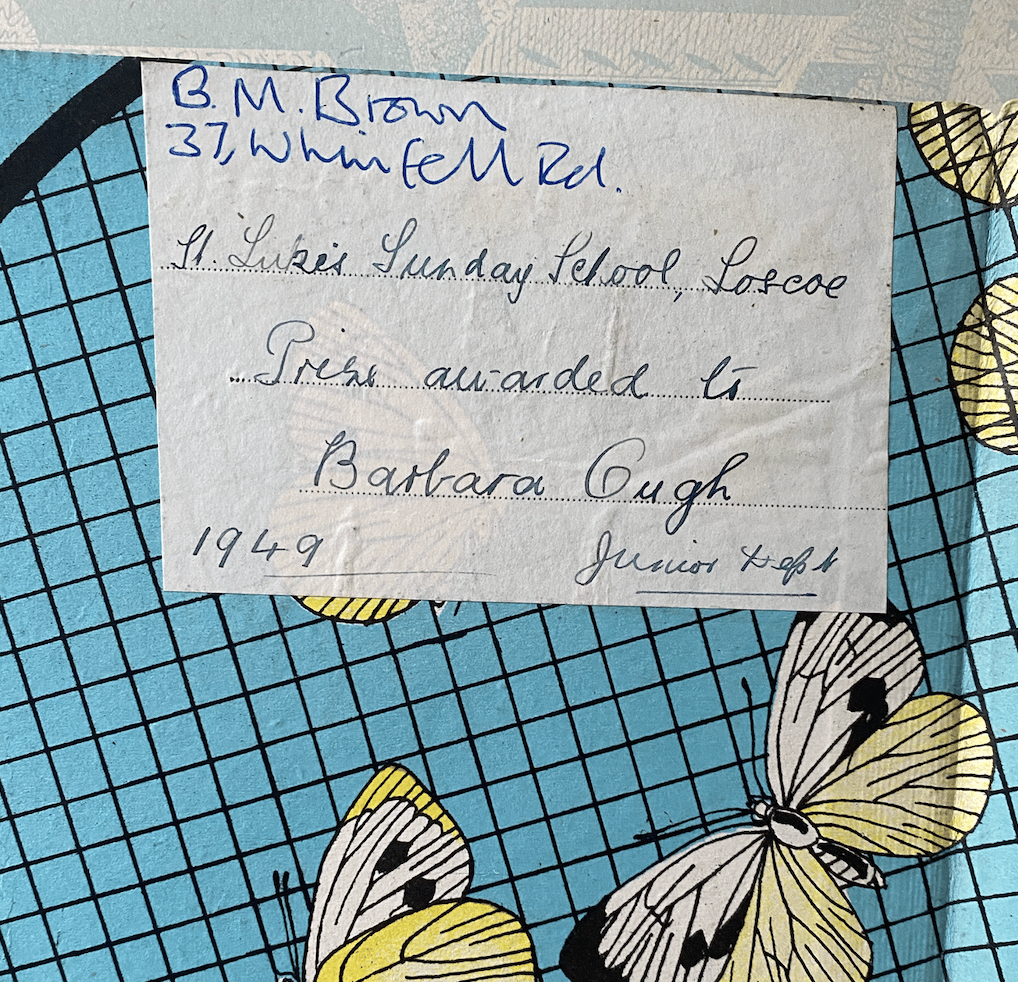 B. M. Brown
37, Whinfell Rd.
St. Luke's Sunday School, Loscoe
Prize awarded to
Barbara Ough
1949 Junior Dept